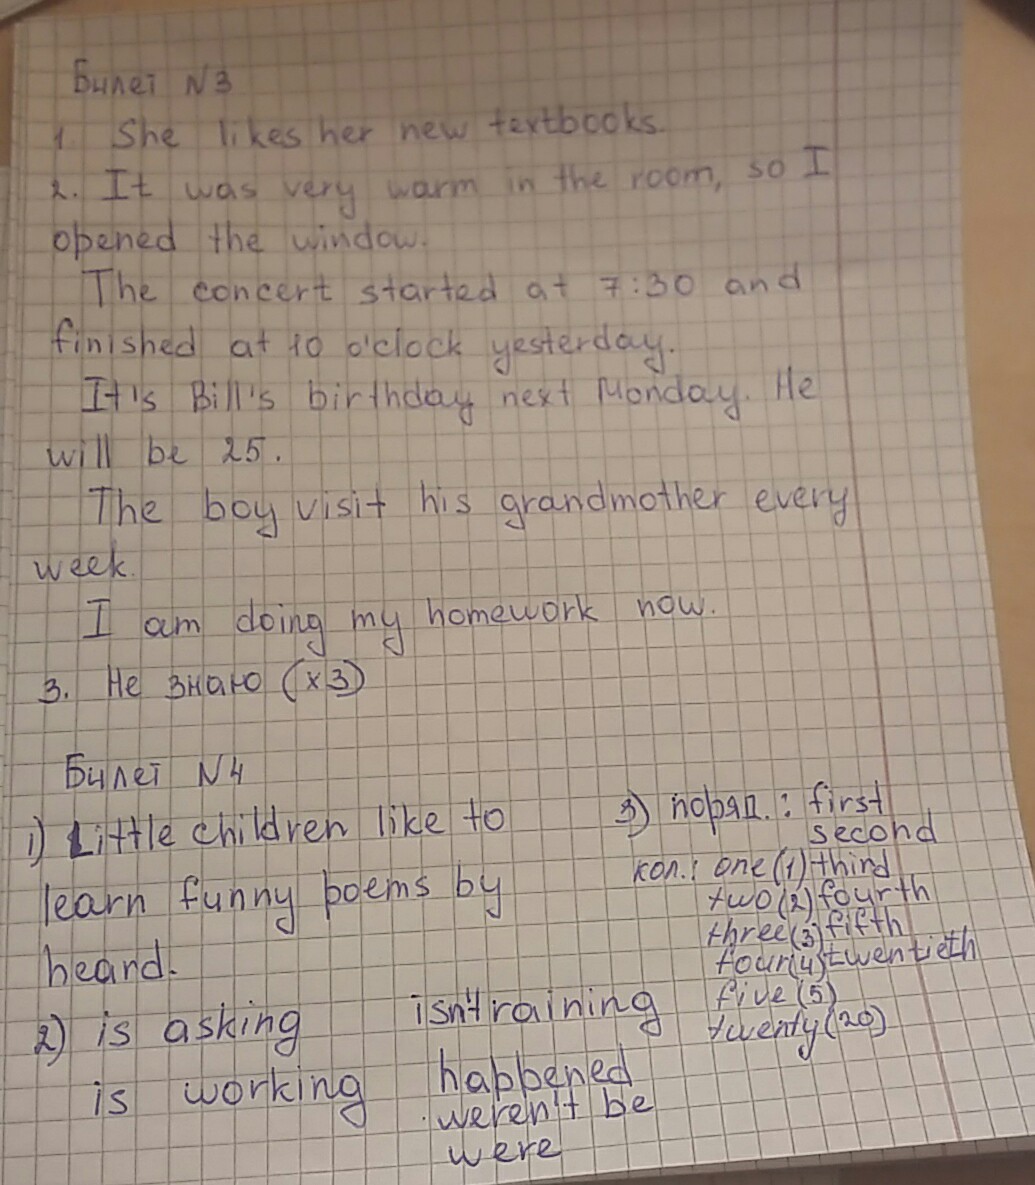 Билет N3
1. She likes her new textbooks.
2. It was very warm in the room, so I
opened the window.
The concert started at 7:30 and
finished at 10 o'clock yesterday.
It's Bill's birthday next Monday. He
will be 25.
The boy visit his grandmother every
week.
I am doing my homework now.
3. Не знаю (x3)
Билет N4
1) Little children like to
learn funny poems by
heard.
2) is asking
is working
isn't raining
happened
weren't be
were
3) поряд.: first
second
кол.: one (1) third
two (2) fourth
three (3) fifth
four (4) twentieth
five (5)
twenty (20)